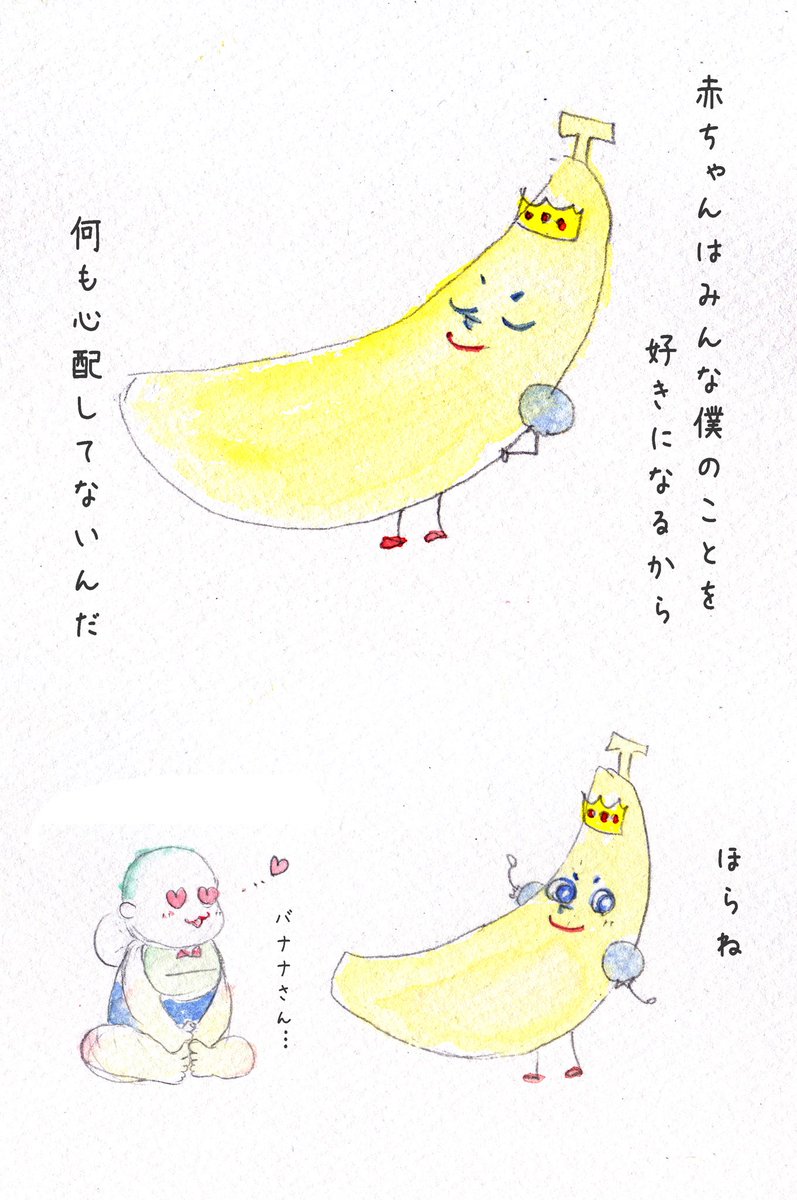 赤ちゃんはみんな僕のことを
好きになるから
何も心配してないんだ
ほらね
バナナさん…